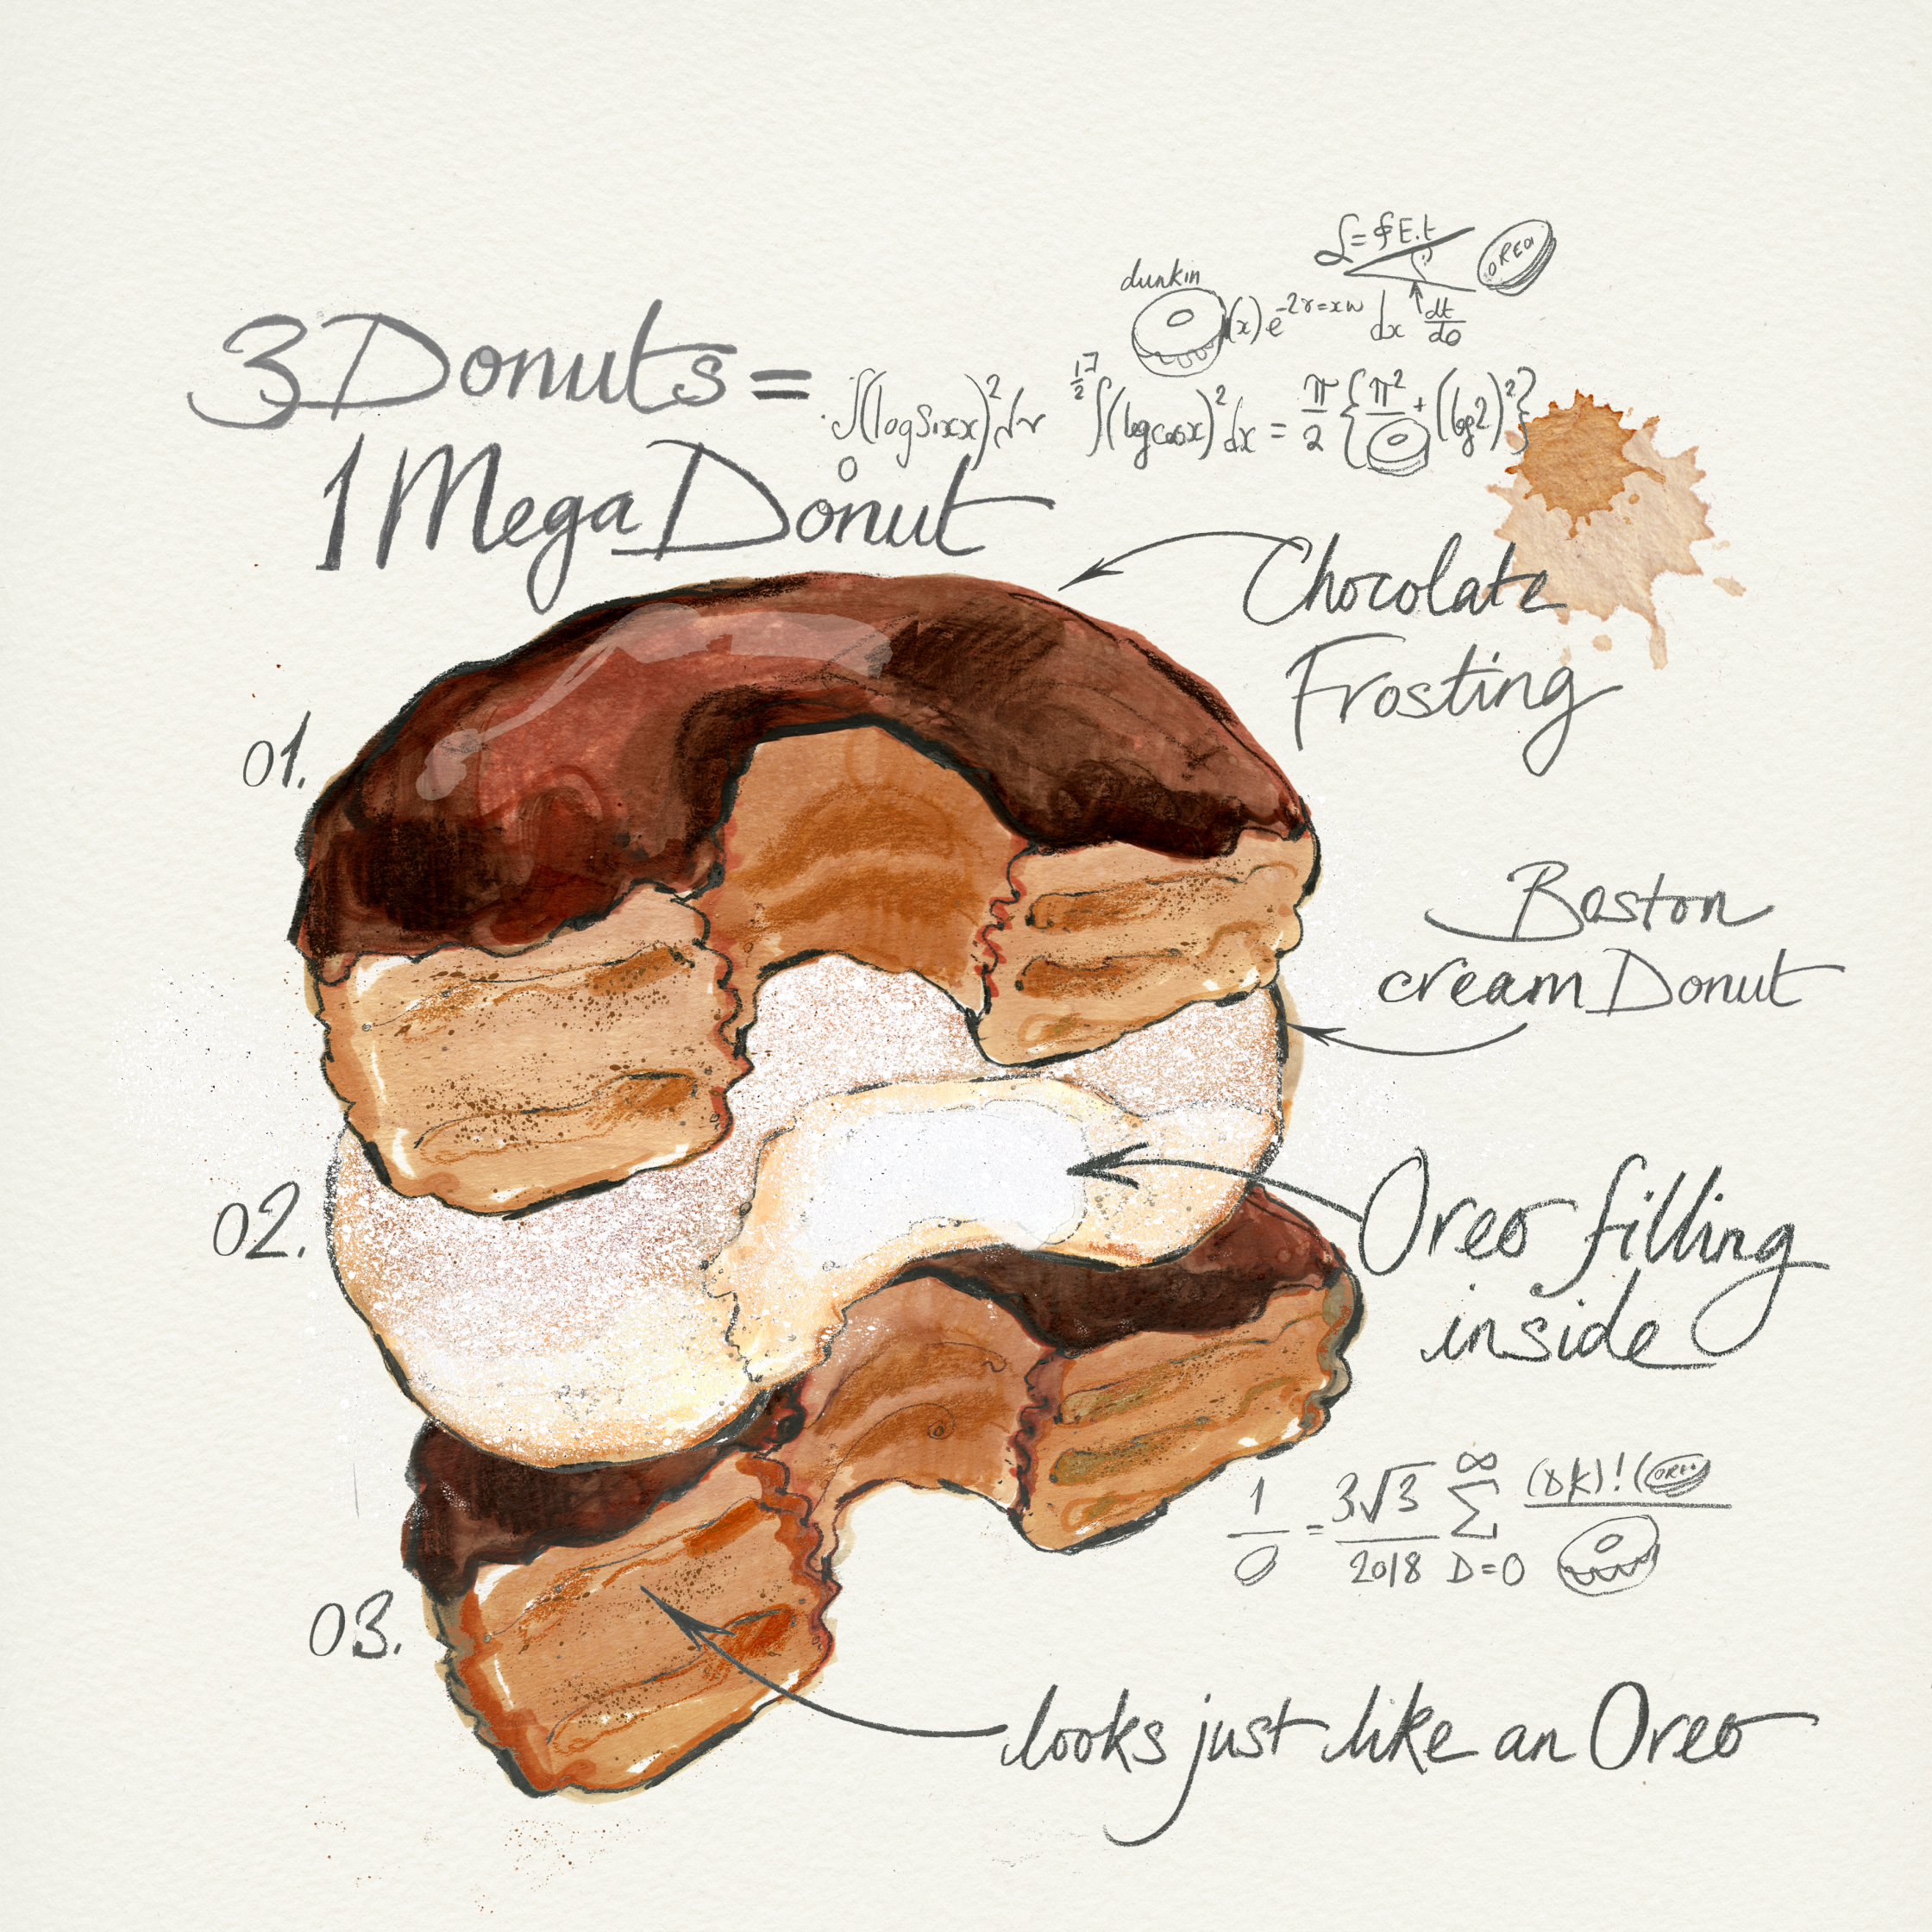 OREO
dunkin
(x) e^-2r=xw dx dt/do
3 Donuts =
1 Mega Donut
(log cos x)² dx = π/2 { π² + (log 2)² }
Chocolate
Frosting
01.
Boston
cream Donut
02.
Oreo filling
inside
1 = 3√3 ∞ Σ
2018 D=0
03.
looks just like an Oreo